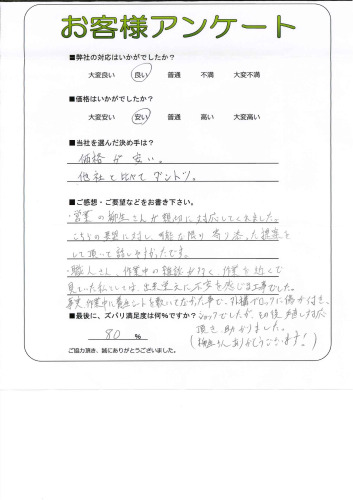 お客様アンケート
■弊社の対応はいかがでしたか？
大変良い 良い 普通 不満 大変不満
■価格はいかがでしたか？
大変安い 安い 普通 高い 大変高い
■当社を選んだ決め手は？
価格が安い。
他社と比べてダントツ。
■ご感想・ご要望などをお書き下さい。
・営業の柳生さんが親切に対応してくれました。
こちらの要望に対し、可能な限り寄り添った提案を
して頂いて話しやすかったです。
・職人さん、作業中の雑談が多く、作業を近くで
見ていた私としては、出来栄えに不安を感じる工事でした。
事実、作業中に養生シートを敷いてなかった事で、外構ブロックに傷が付き、
ショックでしたが、その後 直し対応
頂き助かりました。
(柳生さんありがとうございます！)
■最後に、ズバリ満足度は何％ですか？
80 ％
ご協力頂き、誠にありがとうございました。